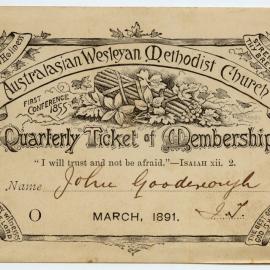 Holiness
Australasian Wesleyan Methodist Church
FIRST
CONFERENCE
1855
Quarterly Ticket of Membership
"I will trust and not be afraid."—ISAIAH xii. 2.
Name John Goodenough
O
MARCH, 1891.
J. T.